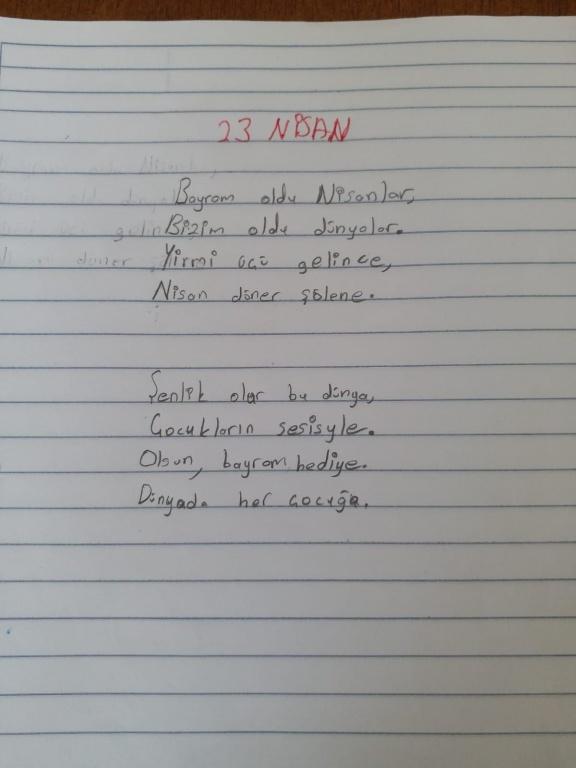 23 NİSAN
Bayram oldu Nisanlar,
Bizim oldu dünyalar.
Yirmi üçü gelince,
Nisan döner şölene.
Şenlik olur bu dünya,
Çocukların sesisyle.
Olsun, bayram hediye.
Dünyada her çocuğa.